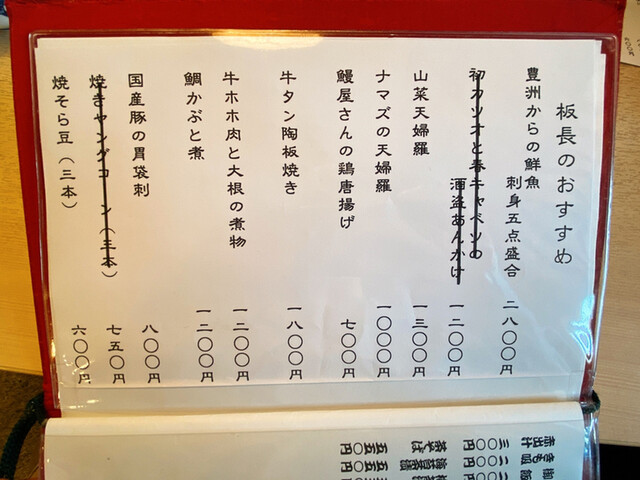 板長のおすすめ
豊洲からの鮮魚
刺身五点盛合
二八〇〇円
初カツオと春キャベツの
酒盗あんかけ
一二〇〇円
山菜天婦羅
一三〇〇円
ナマズの天婦羅
一〇〇〇円
鰻屋さんの鶏唐揚げ
七〇〇円
牛タン陶板焼き
一八〇〇円
牛ホホ肉と大根の煮物
一二〇〇円
鯛かぶと煮
一二〇〇円
国産豚の胃袋刺
八〇〇円
焼きヤングコーン（三本）
七五〇円
焼そら豆（三本）
六〇〇円
赤出汁
三〇〇円
きも吸
二〇〇円
茶そば
五五〇円